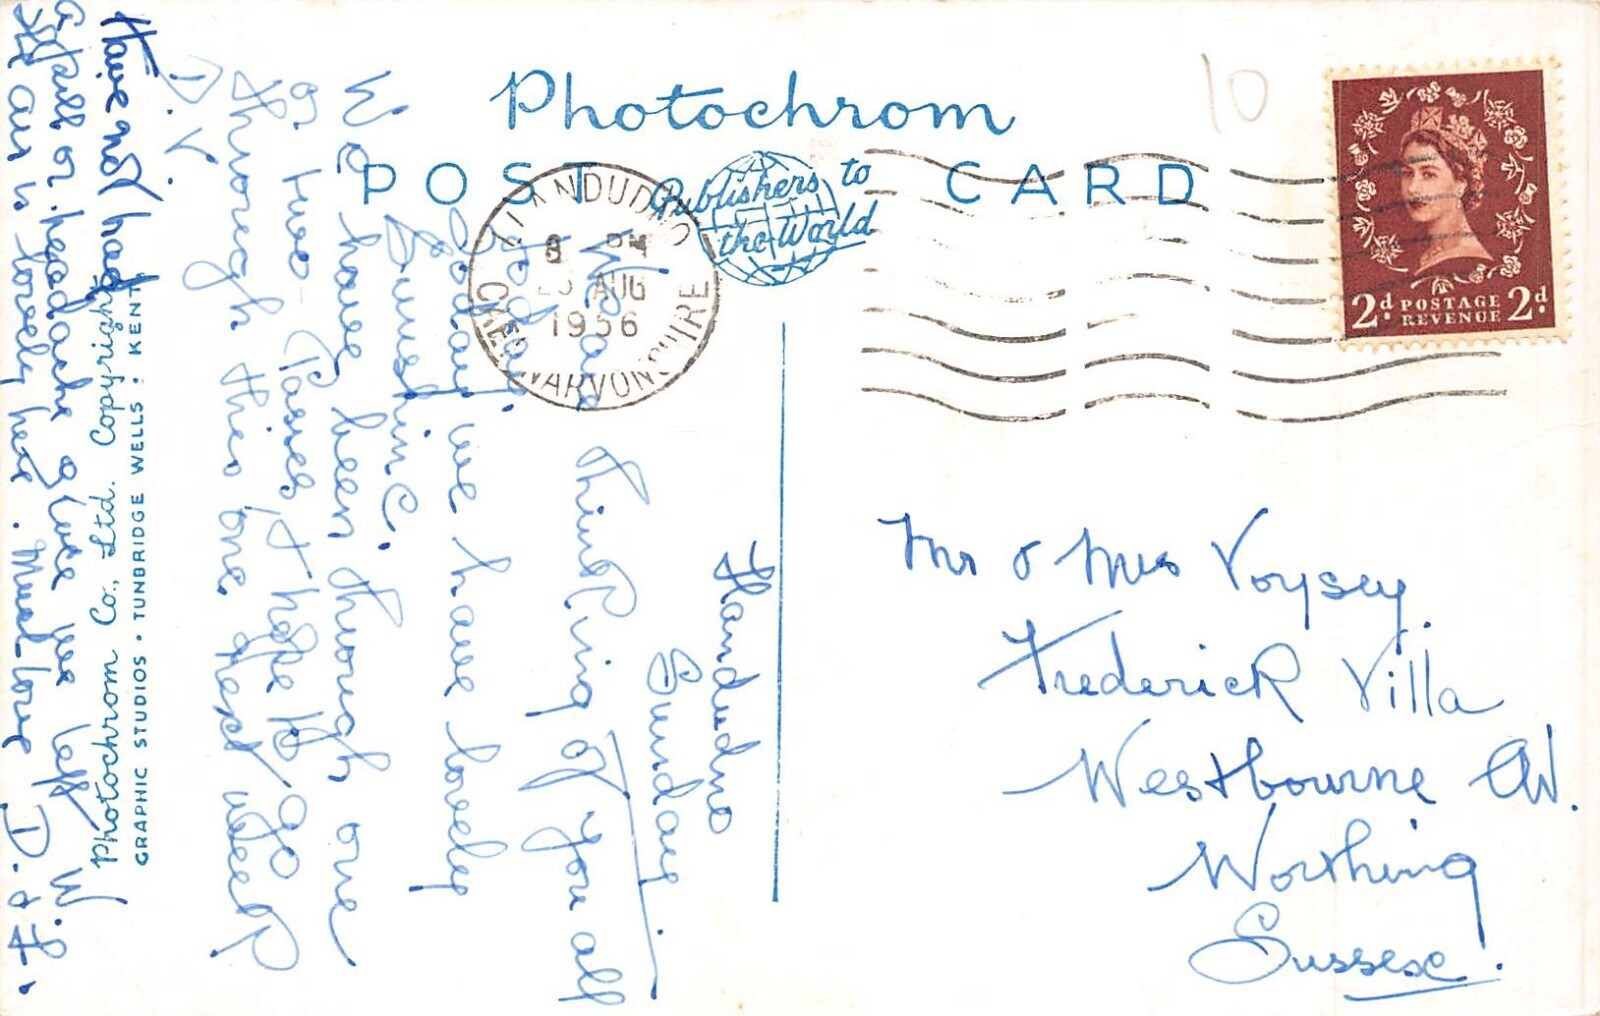 Photochrom
POST CARD
Publishers to
the World
10
LLANDUDNO
8 PM
AUG
1956
CAERNARVONSHIRE
2d POSTAGE 2d
REVENUE
Llandudno
Sunday
We are thinking of you all
today.
Today we have lovely
Sunshine.
We have been through one
or two Passes, & hope to go
through this one next week
D.V.
Have not had
a fall or headache since we left W.
The air is lovely here. Much love D. & F.
Photochrom Co., Ltd. Copyright
GRAPHIC STUDIOS • TUNBRIDGE WELLS : KENT
Mr & Mrs Voysey.
Frederick Villa
Westbourne Av.
Worthing
Sussex.